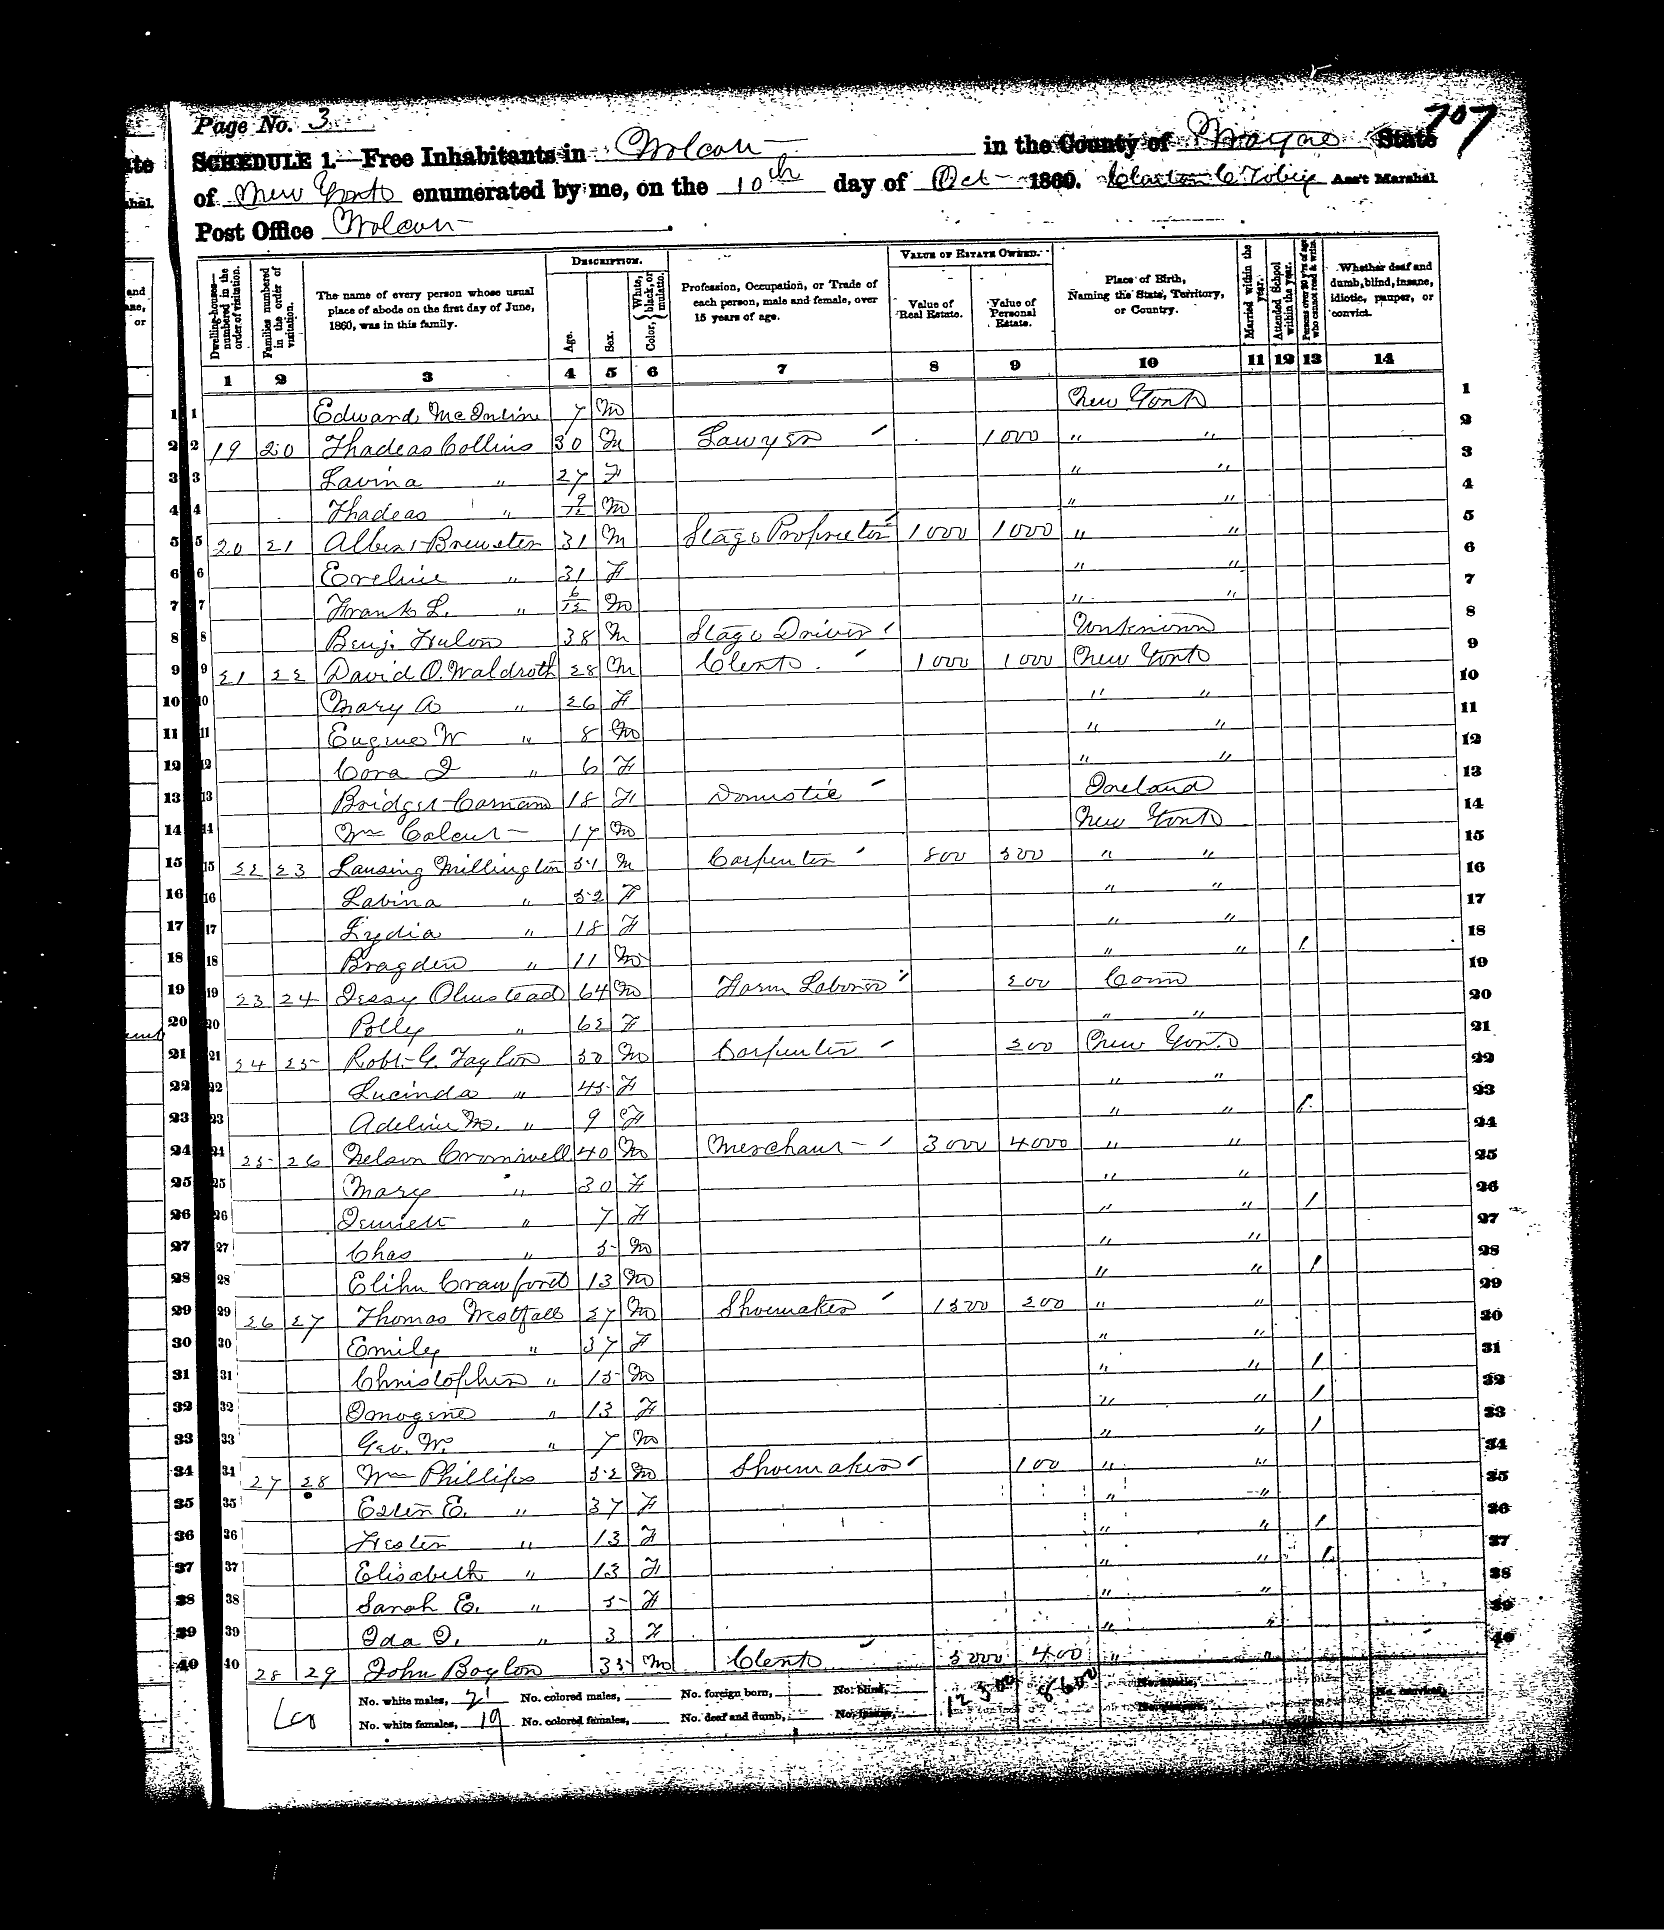 Page No. 3
707
SCHEDULE 1.—Free Inhabitants in Wolcott in the County of Wayne State
of New York enumerated by me, on the 10th day of Oct 1860. Ass't Marshal.
Post Office Wolcott
DESCRIPTION. VALUE OF ESTATE OWNED.
Dwelling-houses—numbered in the order of visitation. Families numbered in the order of visitation. The name of every person whose usual place of abode on the first day of June, 1860, was in this family. Age. Sex. Color, White, black, or mulatto. Profession, Occupation, or Trade of each person, male and female, over 15 years of age. Value of Real Estate. Value of Personal Estate. Place of Birth, Naming the State, Territory, or Country. Married within the year. Attended School within the year. Persons over 20 y'rs of age who cannot read & write. Whether deaf and dumb, blind, insane, idiotic, pauper, or convict.
1 2 3 4 5 6 7 8 9 10 11 12 13 14
1 Edward 7 M New York
2 19 20 Thadeas Collins 30 M Lawyer 1000 " "
3 Lavina " 27 F " "
4 Thadeas " 9/12 M " "
5 20 21 Albert Brewster 31 M Stage Proprietor 1000 1000 " "
6 Eveline " 31 F " "
7 Frank L. " 6/12 M " "
8 Benj. Hulon 38 M Stage Driver Unknown
9 21 22 David O. Waldroth 28 M Clerk 1000 1000 New York
10 Mary A " 26 F " "
11 Eugene W " 8 M " "
12 Cora I " 6 F " "
13 Bridget 18 F Domestic Ireland
14 Wm 17 M New York
15 22 23 Lansing Millington 51 M Carpenter 800 300 " "
16 Lavina " 52 F " "
17 Lydia " 18 F " "
18 Bragden " 11 M " " 1
19 23 24 Jessy Olmstead 64 M Farm Laborer 200 Conn
20 Polly " 62 F " "
21 24 25 Robt. G. Taylor 50 M Carpenter 200 New York
22 Lucinda " 45 F " "
23 Adeline M. " 9 F " " 1
24 25 26 Nelson Cromwell 40 M Merchant 3000 4000 " "
25 Mary " 30 F " "
26 " 7 F " " 1
27 Chas " 5 M " "
28 Elihu Crawford 13 M " " 1
29 26 27 Thomas Westfall 37 M Shoemaker 1500 200 " "
30 Emily " 37 F " "
31 Christopher " 15 M " " 1
32 Imogene " 13 F " " 1
33 Geo. W. " 7 M " " 1
34 27 28 Wm Phillips 52 M Shoemaker 100 " "
35 E. " 37 F " "
36 Hester " 13 F " " 1
37 Elisabeth " 13 F " " 1
38 Sarah E. " 5 F " "
39 Ida I. " 3 F " "
40 28 29 John Boylon 35 M Clerk 5000 400 " "
No. white males, 21 No. colored males, No. foreign born, No. blind,
No. white females, 19 No. colored females, No. deaf and dumb, No. insane,